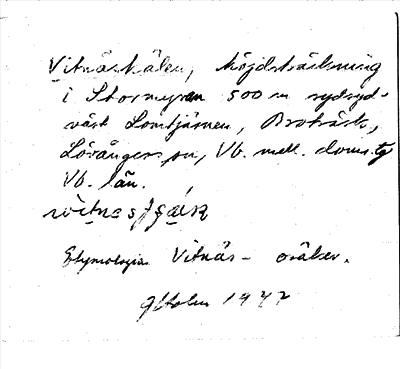 Vitnäshälen, höjdsträckning
i Stormyran 500 m sydsyd-
väst Lomtjärnen, Broträsk,
Lövångers sn, Vb. mell. doms. tg
Vb. län.
Etymologin Vitnäs- osäker.
1977